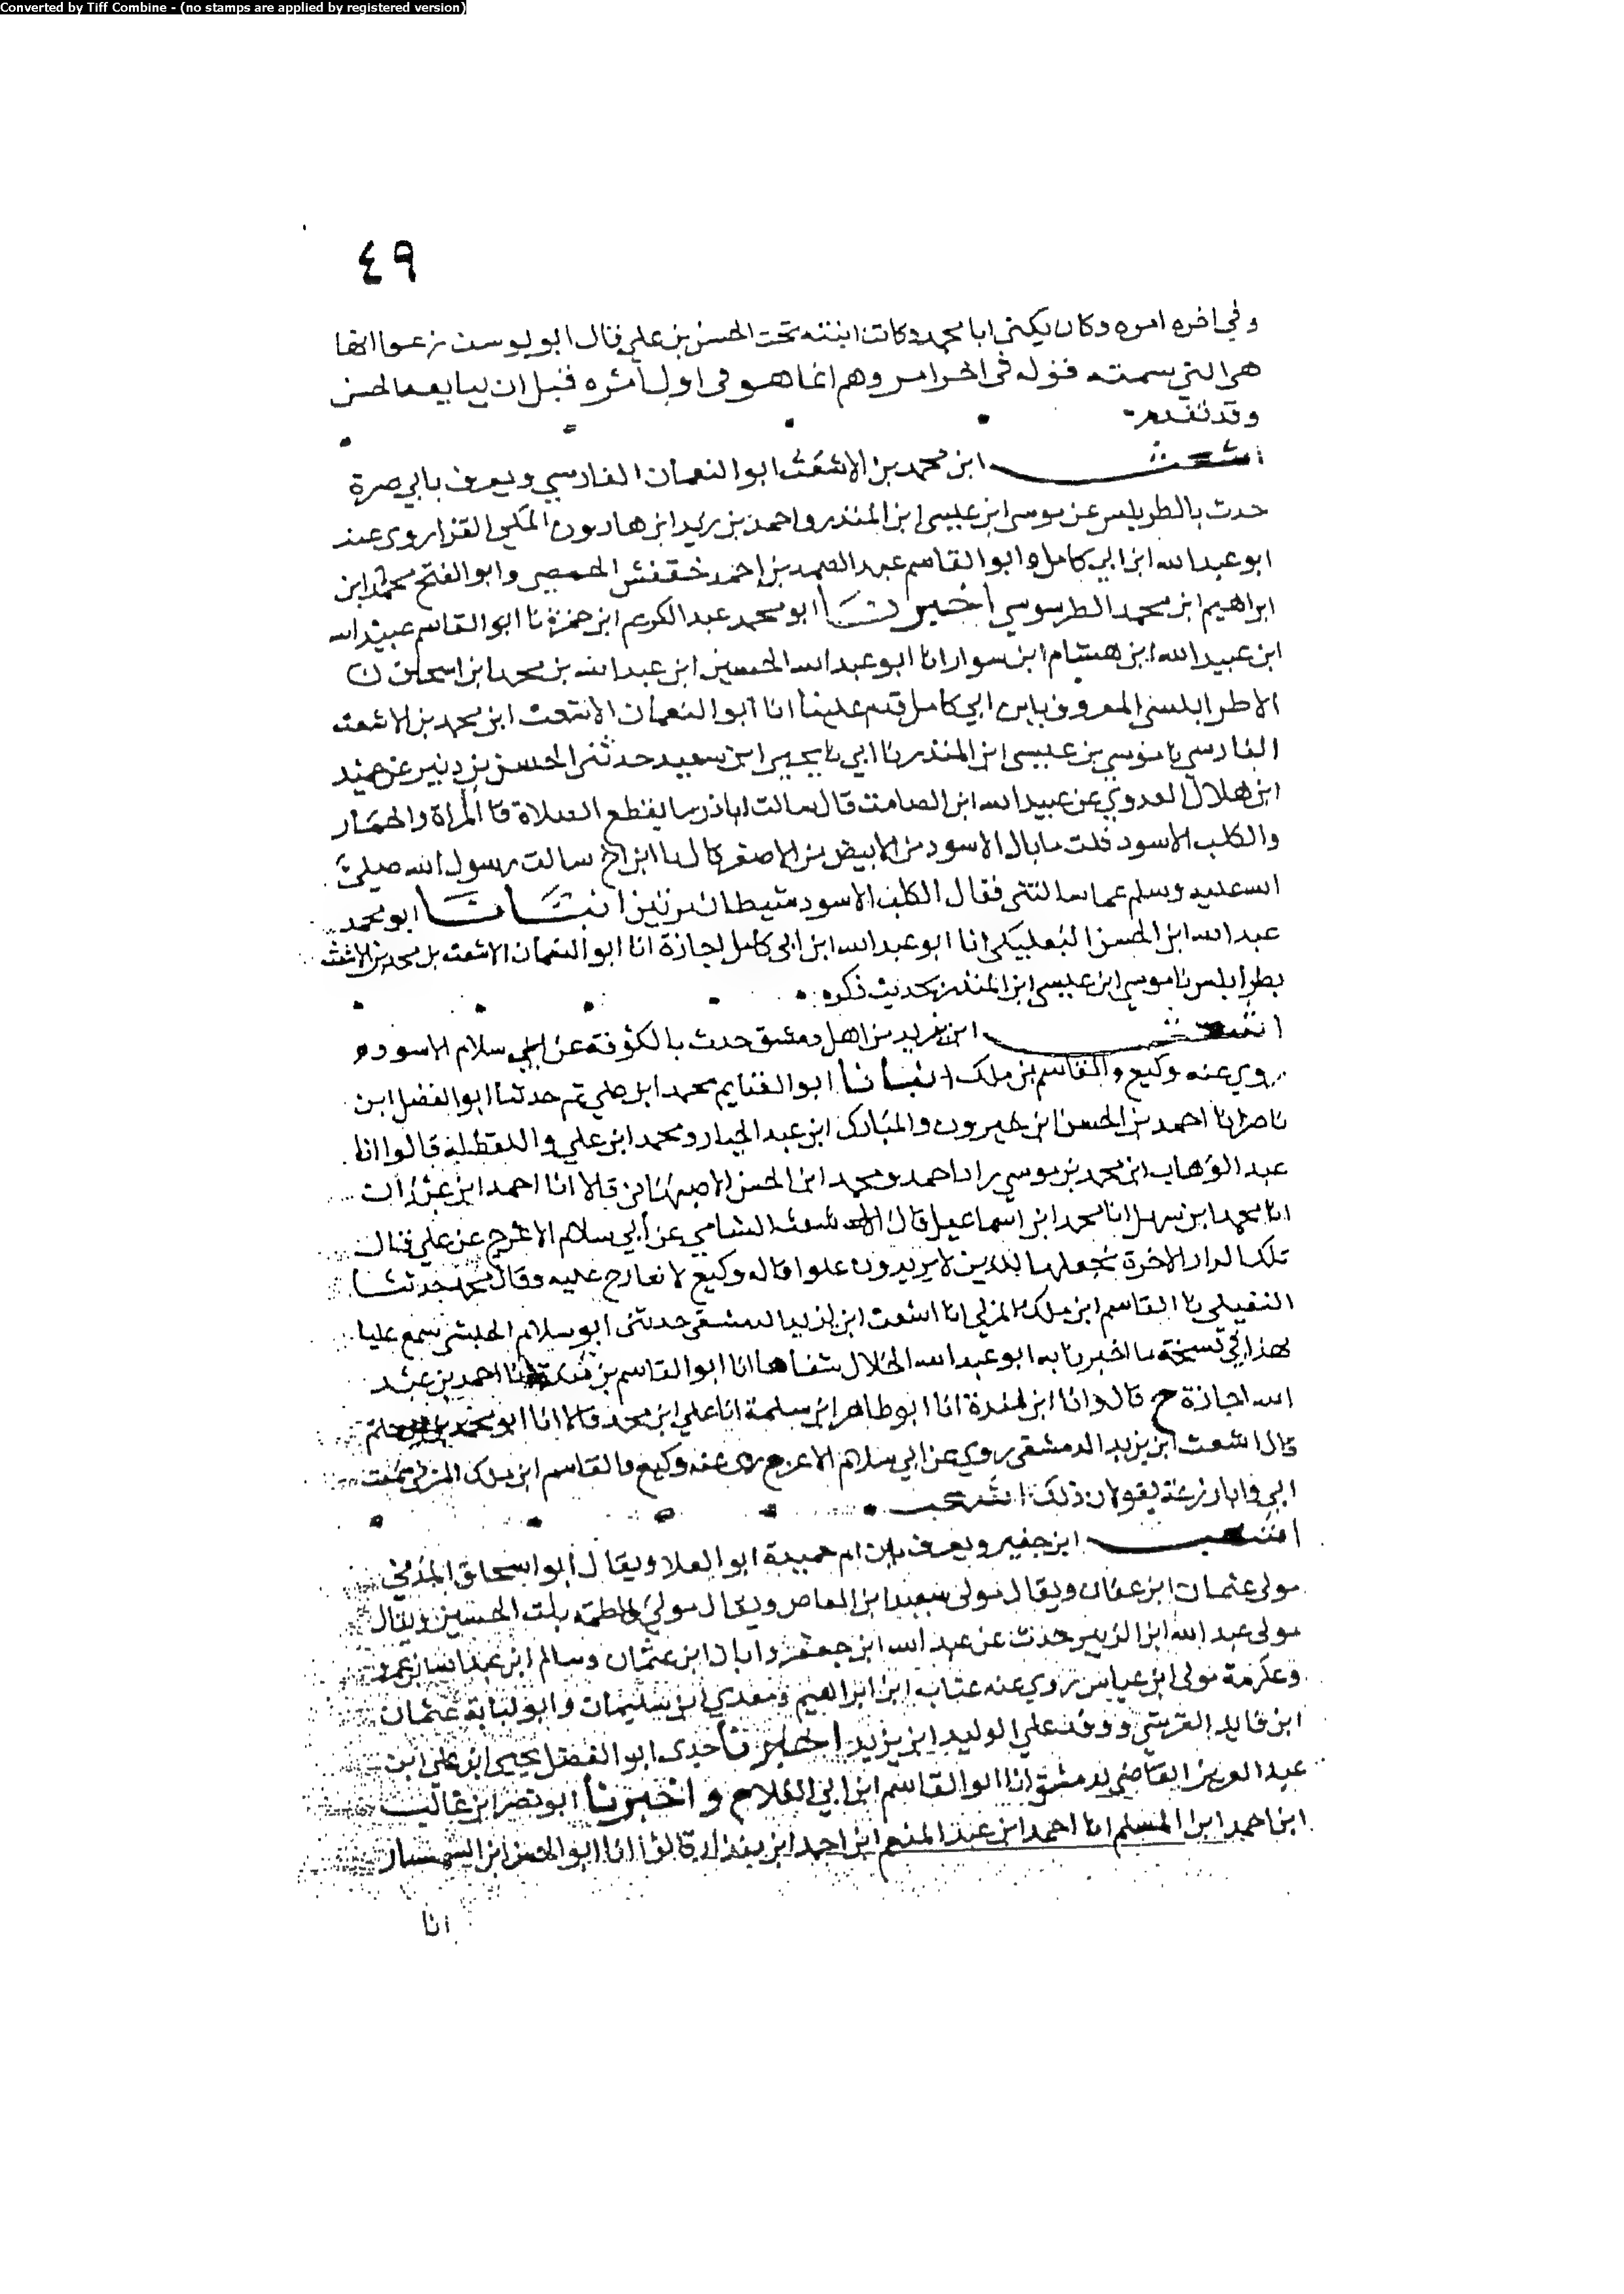 Converted by Tiff Combine - (no stamps are applied by registered version)
٤٩
وفي اخره امره وكان يكنى ابا محمد وكانت ابنته تحت الحسن بن علي قال ابو يوسف زعموا انها
هي التي سمته فقوله في اخر امره وهم انما هو في اول امره قبل ان يبايع الحسن
وقد تقدم
اشعث ابن محمد بن الاشعث ابو النعمان الفارسي ويعرف بابي صرة
حدث باطرابلس عن موسى ابن عيسى ابن المنذر واحمد بن زيد ابن هارون المكي القزاز روى عنه
ابو عبد الله ابن ابي كامل وابو القاسم عبد الصمد بن احمد خنفش الحمصي وابو الفتح محمد ابن
ابراهيم ابن محمد الطرسوسي اخبرنا ابو محمد عبد الكريم ابن حمزة نا ابو القاسم عبيد الله
ابن عبيد الله ابن هشام ابن سوار انا ابو عبد الله الحسين ابن عبد الله بن محمد ابن اسحاق
الاطرابلسي المعروف بابن ابي كامل قدم علينا انا ابو النعمان الاشعث ابن محمد بن الاشعث
الفارسي نا موسى بن عيسى ابن المنذر نا ابي نا يحيى ابن سعيد حدثني الحسن بن دنير عن حميد
ابن هلال العدوي عن عبيد الله ابن الصامت قال سالت اباذر ما يقطع الصلاة قا المراة والحمار
والكلب الاسود قلت ما بال الاسود من الابيض من الاصفر قال يا ابن اخ سالت رسول الله صلى
الله عليه وسلم عما سالتني فقال الكلب الاسود شيطان انبانا ابو محمد
عبد الله ابن الحسن البعلبكي انا ابو عبد الله ابن ابي كامل اجازة انا ابو النعمان الاشعث بن محمد بن الاشعث
بطرابلس نا موسى ابن عيسى ابن المنذر بحديث ذكره
اشعث ابن يزيد من اهل دمشق حدث بالكوفة عن ابي سلام الاسود
روى عنه وكيع والقاسم بن ملك انبانا ابو الغنايم محمد ابن علي ثم حدثنا ابو الفضل ابن
ناصر انا احمد بن الحسن ابن خيرون والمبارك ابن عبد الجبار ومحمد ابن علي واللفظ له قالوا انا
عبد الوهاب ابن محمد بن موسى زاد احمد ومحمد ابن الحسن الاصبهاني قالا انا احمد ابن عبدان
انا محمد ابن سهل انا محمد ابن اسماعيل قال اشعث الشامي عن ابي سلام الاعرج عن علي قال
تلك الدار الاخرة نجعلها للذين لا يريدون علوا قاله وكيع لا نعارح عليه وقال محمد حدثنا
النفيلي نا القاسم ابن ملك المزني انا اشعث ابن يزيد الدمشقي حدثني ابو سلام الحبشي سمع عليا
بهذا في نسخة ما اخبرنا به ابو عبد الله الخلال شفاها انا ابو القاسم بن مندة انا احمد بن عبد
الله اجازة ح قال وانا ابن مندة انا ابو طاهر ابن سلمة انا علي ابن محمد قالا انا ابو محمد بن ابي حاتم
قال اشعث ابن يزيد الدمشقي روى عن ابي سلام الاعرج روى عنه وكيع والقاسم ابن ملك المزني سمعت
ابي وابا زرعة يقولان ذلك اشعب
اشعب ابن جبير ويعرف بابن ام حميدة ابو العلا ويقال ابو اسحاق المدني
مولى عثمان ابن عفان ويقال مولى سعيد ابن العاص ويقال مولى فاطمة بنت الحسين ويقال
مولى عبد الله ابن الزبير حدث عن عبد الله ابن جعفر وابان ابن عثمان وسالم ابن عبد الله ابن عمر
وعكرمة مولى ابن عباس روى عنه عتاب ابن ابراهيم ومعدي ابن سليمان وابو لبابة عثمان
ابن فايد القرشي ووفد على الوليد ابن يزيد اخبرنا جدي ابو الفضل يحيى ابن علي ابن
عبد العزيز القاضي بدمشق انا ابو القاسم ابن ابي العلا ح واخبرنا ابو نصر ابن غالب
ابن احمد ابن المسلم انا احمد ابن عبد المنعم ابن احمد ابن بندار قالوا انا ابو الحسن ابن السمسار
انا